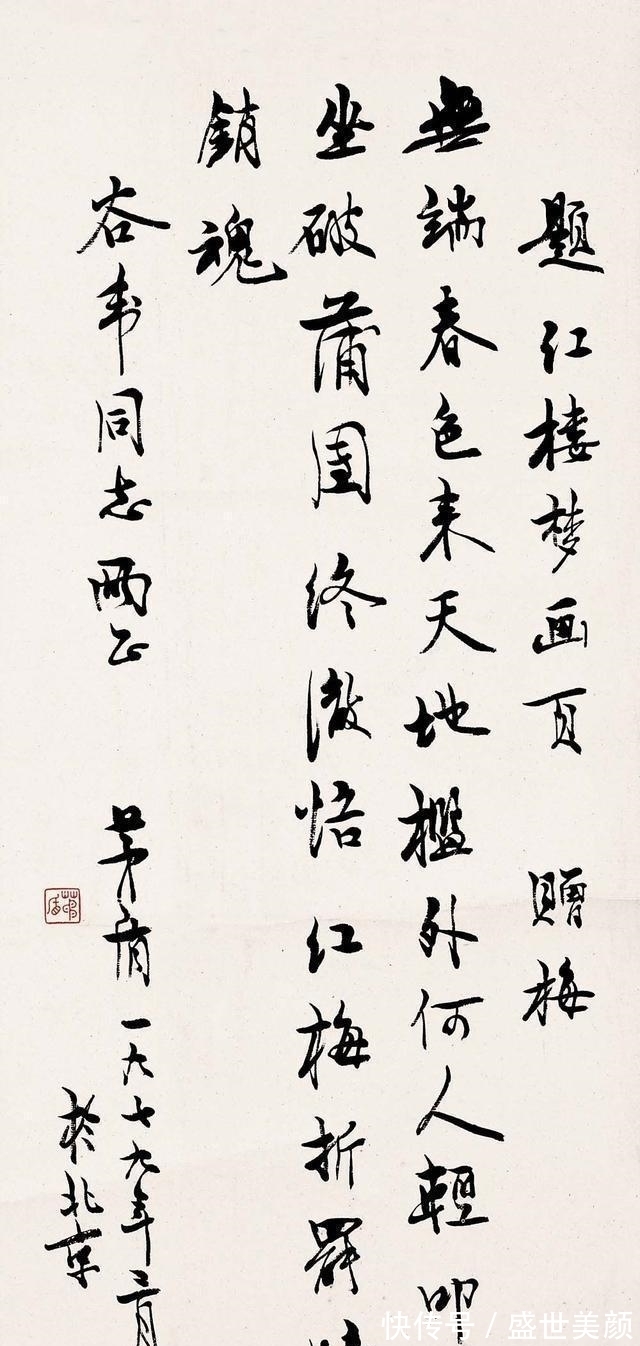 题红楼梦画页 贈梅
無端春色来天地檻外何人輕叩
坐破蒲團终澈悟红梅折罷
銷魂
谷韦同志兩正
茅盾一九七九年 月
於北京
茅盾
快传号 / 盛世美颜